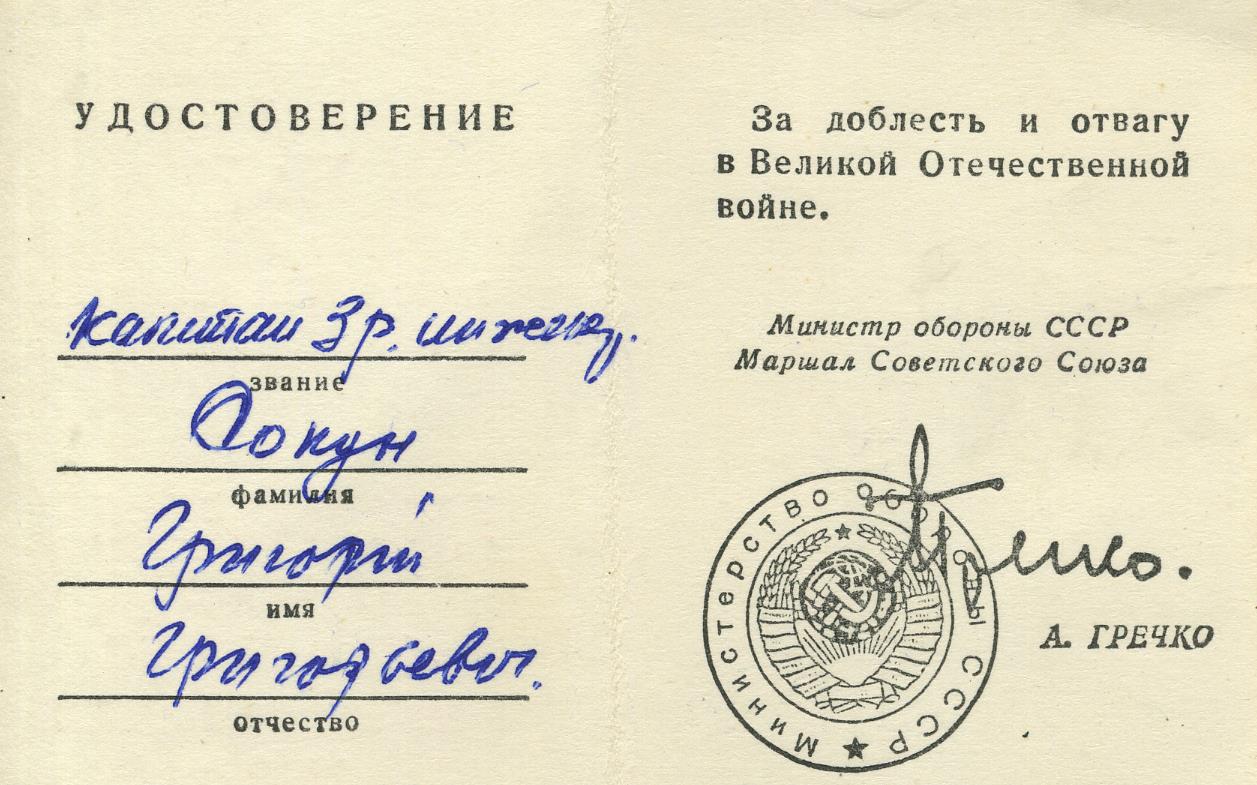 УДОСТОВЕРЕНИЕ
капитан 3 р. инженер.
звание
Сокун
фамилия
Григорій
имя
Григорьевич.
отчество
За доблесть и отвагу
в Великой Отечественной
войне.
Министр обороны СССР
Маршал Советского Союза
Гречко.
А. ГРЕЧКО
Министерство обороны СССР